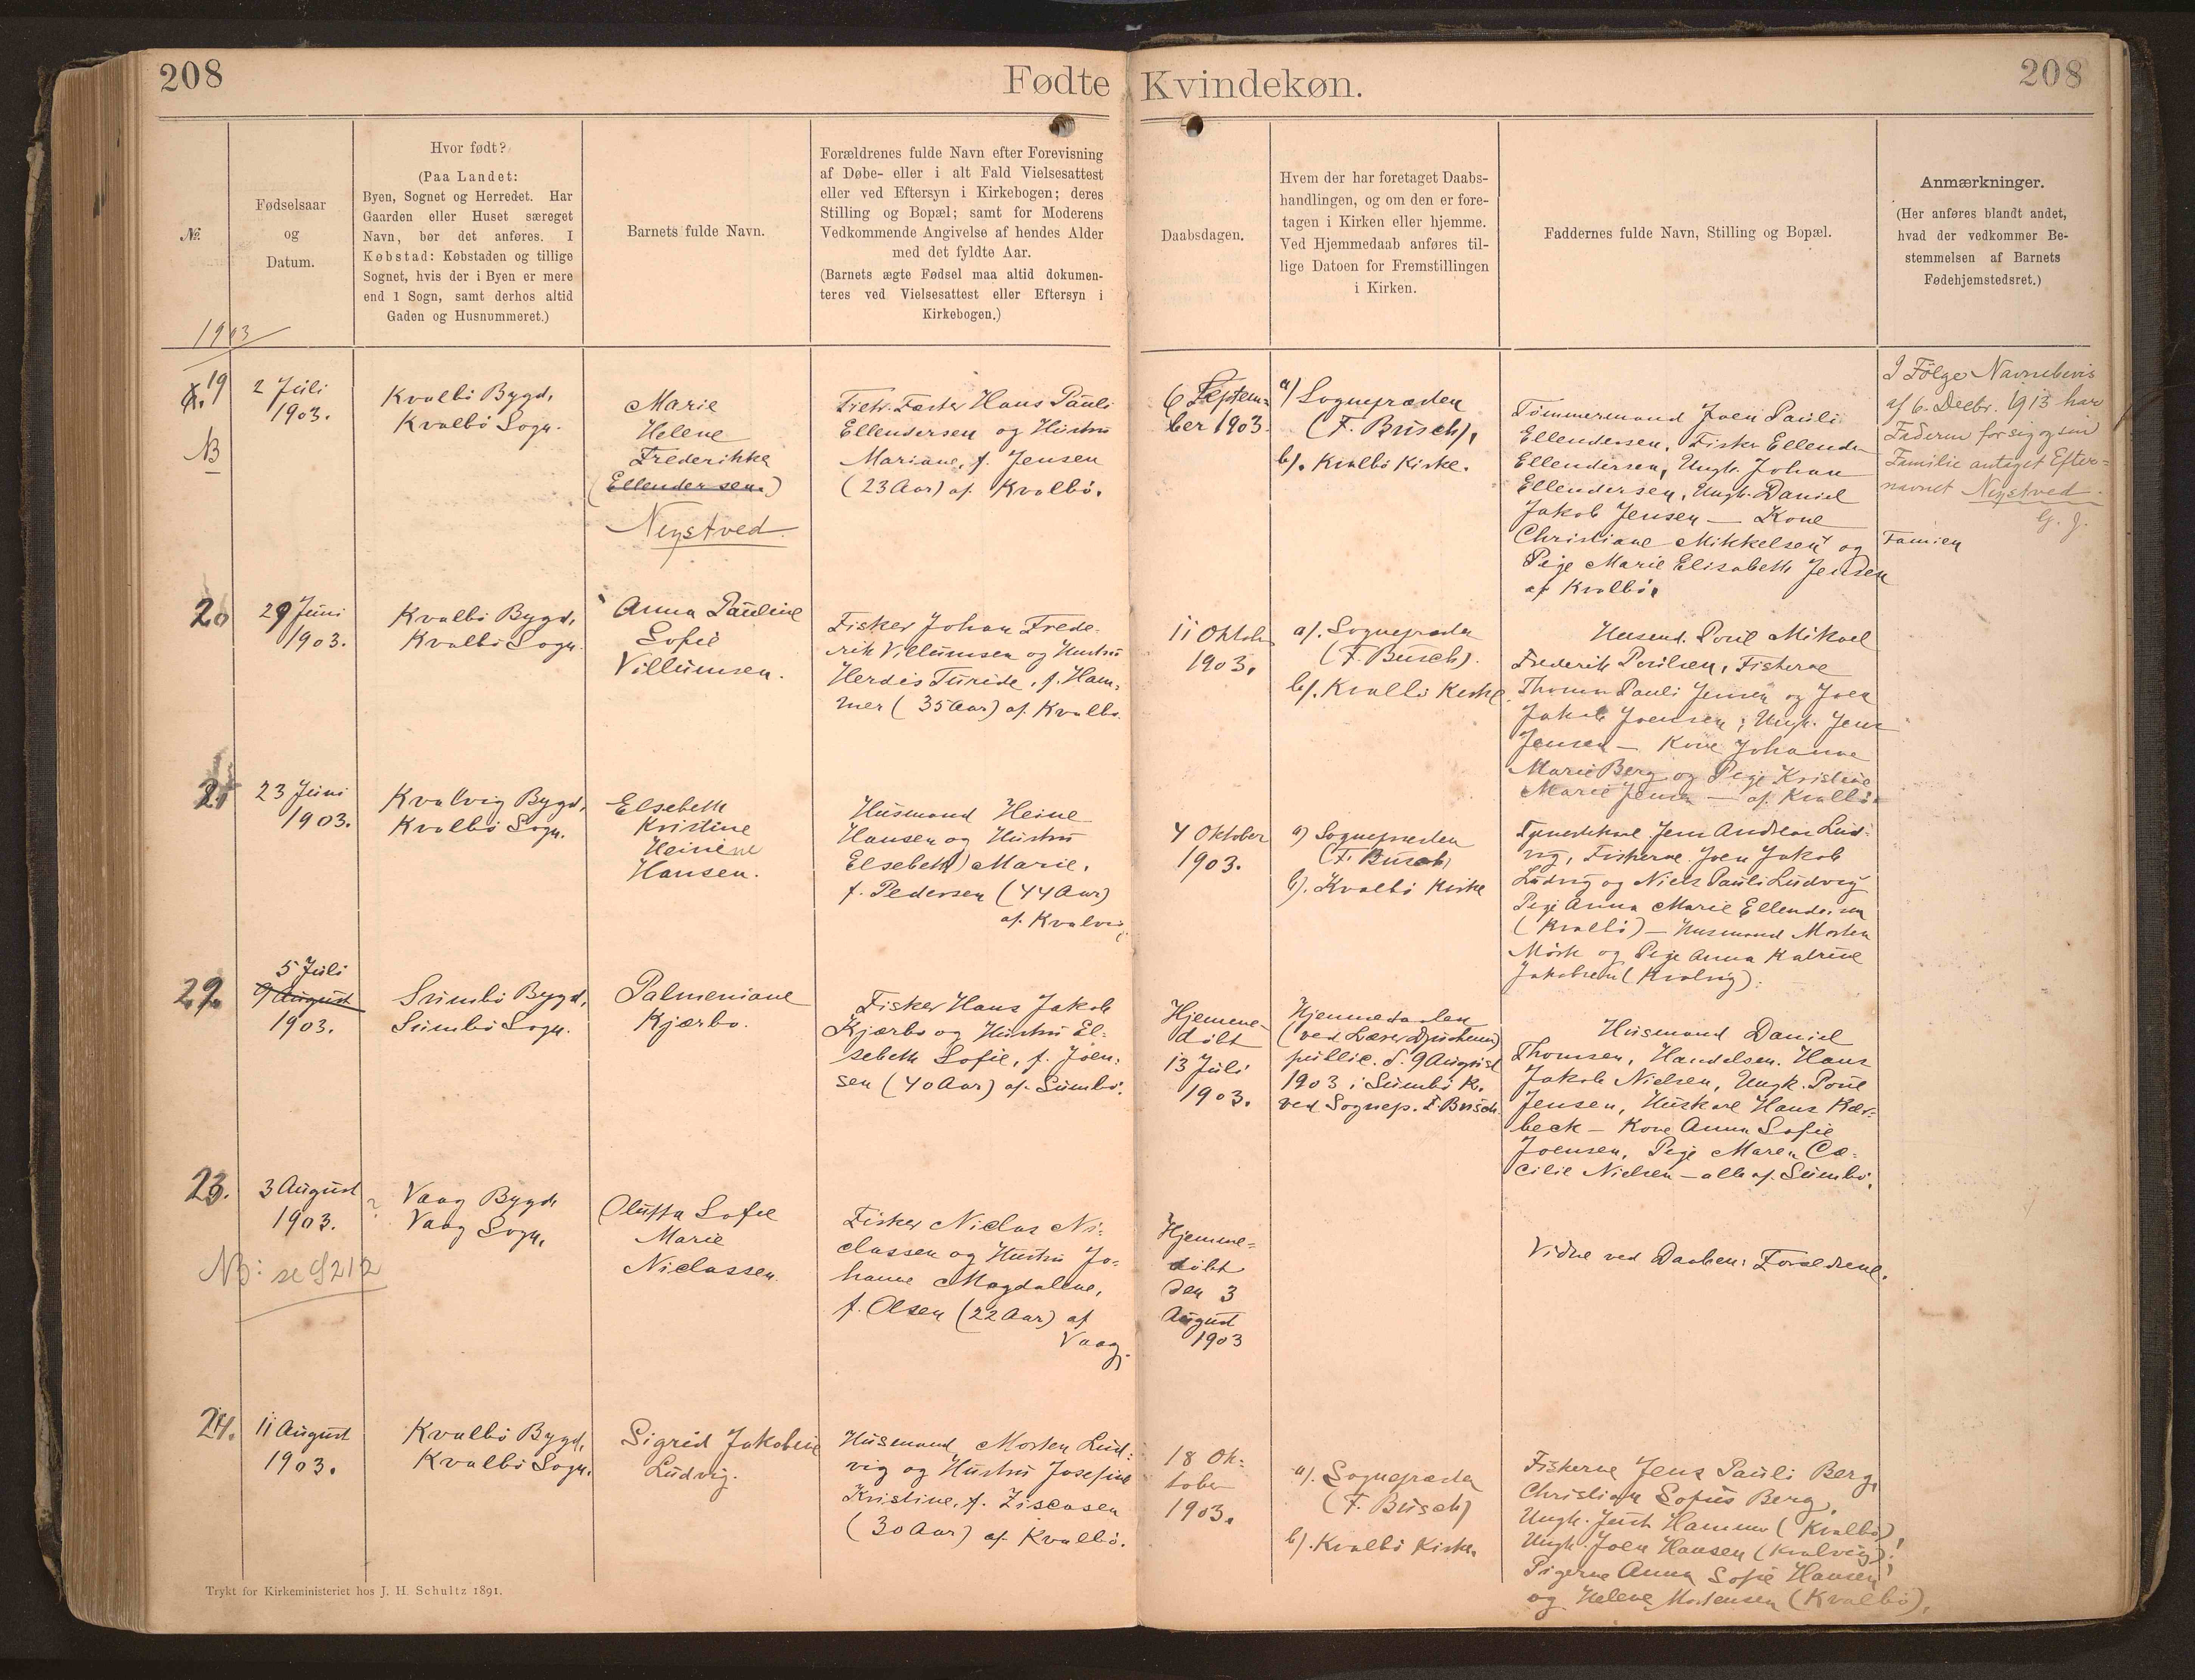 208
Fødte
Kvindekøn.
208
№
Fødselsaar
og
Datum.
Hvor født?
(Paa Landet:
Byen, Sognet og Herredet. Har
Gaarden eller Huset særeget
Navn, bør det anføres. I
Købstad: Købstaden og tillige
Sognet, hvis der i Byen er mere
end 1 Sogn, samt derhos altid
Gaden og Husnummeret.)
Barnets fulde Navn.
Forældrenes fulde Navn efter Forevisning
af Døbe- eller i alt Fald Vielsesattest
eller ved Eftersyn i Kirkebogen; deres
Stilling og Bopæl; samt for Moderens
Vedkommende Angivelse af hendes Alder
med det fyldte Aar.
(Barnets ægte Fødsel maa altid dokumen-
teres ved Vielsesattest eller Eftersyn i
Kirkebogen.)
Daabsdagen.
Hvem der har foretaget Daabs-
handlingen, og om den er fore-
tagen i Kirken eller hjemme.
Ved Hjemmedaab anføres til-
lige Datoen for Fremstillingen
i Kirken.
Faddernes fulde Navn, Stilling og Bopæl.
Anmærkninger.
(Her anføres blandt andet,
hvad der vedkommer Be-
stemmelsen af Barnets
Fødehjemstedsret.)
1903
19
NB
2 Juli
1903.
Kvalbö Bygd,
Kvalbö Sogn.
Marie
Helene
Frederikke
(Ellendersen.)
Neystved.
Hans Pauli
Ellendersen og Hustru
Mariane, f. Jensen
(23 Aar) af Kvalbö.
6 Septem-
ber 1903.
a) Sognepræsten
(F. Busch),
b). Kvalbö Kirke.
Tömmermand Joen Pauli
Ellendersen, Fisker Ellende
Ellendersen, Ungk. Johan
Ellendersen, Ungk. Daniel
Jakob Jensen — Kone
Christiane Mikkelsen og
Pige Marie Elisabeth Jensen
af Kvalbö.
I Fölge Navnebevis
af 6. Decbr. 1913 har
Faderen for sig og sin
Familie antaget Efter-
navnet Neystved.
G. J.
20
29 Juni
1903.
Kvalbö Bygd,
Kvalbö Sogn.
Anna Pauline
Sofie
Villumsen.
Fisker Johan Frede-
rik Villumsen og Hustru
Herdis Turide, f. Ham-
mer (35 Aar) af Kvalbö.
11 Oktober
1903.
a). Sognepræsten
(F. Busch).
b). Kvalbö Kirke.
Husmd. Poul Mikael
Frederik Poulsen, Fiskerne
Thomas Pauli Jensen og Joen
Jakob Joensen, Ungk. Jens
Jensen — Kone Johanne
Marie Berg og Pige Kristine
Marie Jensen — af Kvalbö.
21
23 Juni
1903.
Kvalvig Bygd,
Kvalbö Sogn.
Elsebeth
Kristine
Heinine
Hansen.
Husmand Heine
Hansen og Hustru
Elsebeth Marie,
f. Pedersen (44 Aar)
af Kvalvig.
4 Oktober
1903.
a) Sognepræsten
(F. Busch)
b). Kvalbö Kirke
Tjenestekarl Jens Andreas Lud-
vig, Fiskerne Joen Jakob
Ludvig og Niels Pauli Ludvig
Pige Anna Marie Ellendersen
(Kvalbö) — Husmand Morten
Mörk og Pige Anna Katrine
Jakobsen (Kvalvig).
22.
5 Juli
9 August
1903.
Sumbö Bygd,
Sumbö Sogn.
Palmeniane
Kjærbo.
Fisker Hans Jakob
Kjærbo og Hustru El-
sebeth Sofie, f. Joen-
sen (40 Aar) af Sumbö.
Hjemme-
döbt
13 Juli
1903.
Hjemmedaaben
public. d. 9 August
1903 i Sumbö K.
ved Sognep. F. Busch.
Husmand Daniel
Thomsen, Handelsm. Hans
Jakob Nielsen, Ungk. Poul
Jensen, Huskarl Hans Kær-
beck — Kone Anna Sofie
Joensen, Pige Maren Cæ-
cilie Nielsen — alle af Sumbö.
23.
3 August
1903.
NB: se S 212
Vaag Bygd,
Vaag Sogn,
Oluffa Sofie
Marie
Niclassen.
Fisker Niclas Ni-
classen og Hustru Jo-
hanne Magdalene,
f. Olsen (22 Aar) af
Vaag.
Hjemme-
döbt
den 3
August
1903
Vidne ved Daaben: Forældrene.
24.
11 August
1903.
Kvalbö Bygd,
Kvalbö Sogn.
Sigrid Jakobine
Ludvig.
Husmand Morten Lud-
vig og Hustru Josefine
Kristine, f.
(30 Aar) af Kvalbö.
18 Ok-
tober
1903.
a). Sognepræsten
(F. Busch)
b). Kvalbö Kirke.
Fiskerne Jens Pauli Berg,
Christian Sofus Berg,
Ungk. Just Hammer (Kvalbö),
Ungk. Joen Hansen (Kvalvig).
Pigerne Anna Sofie Hansen
og Helene Mortensen (Kvalbö).
Trykt for Kirkeministeriet hos J. H. Schultz 1891.